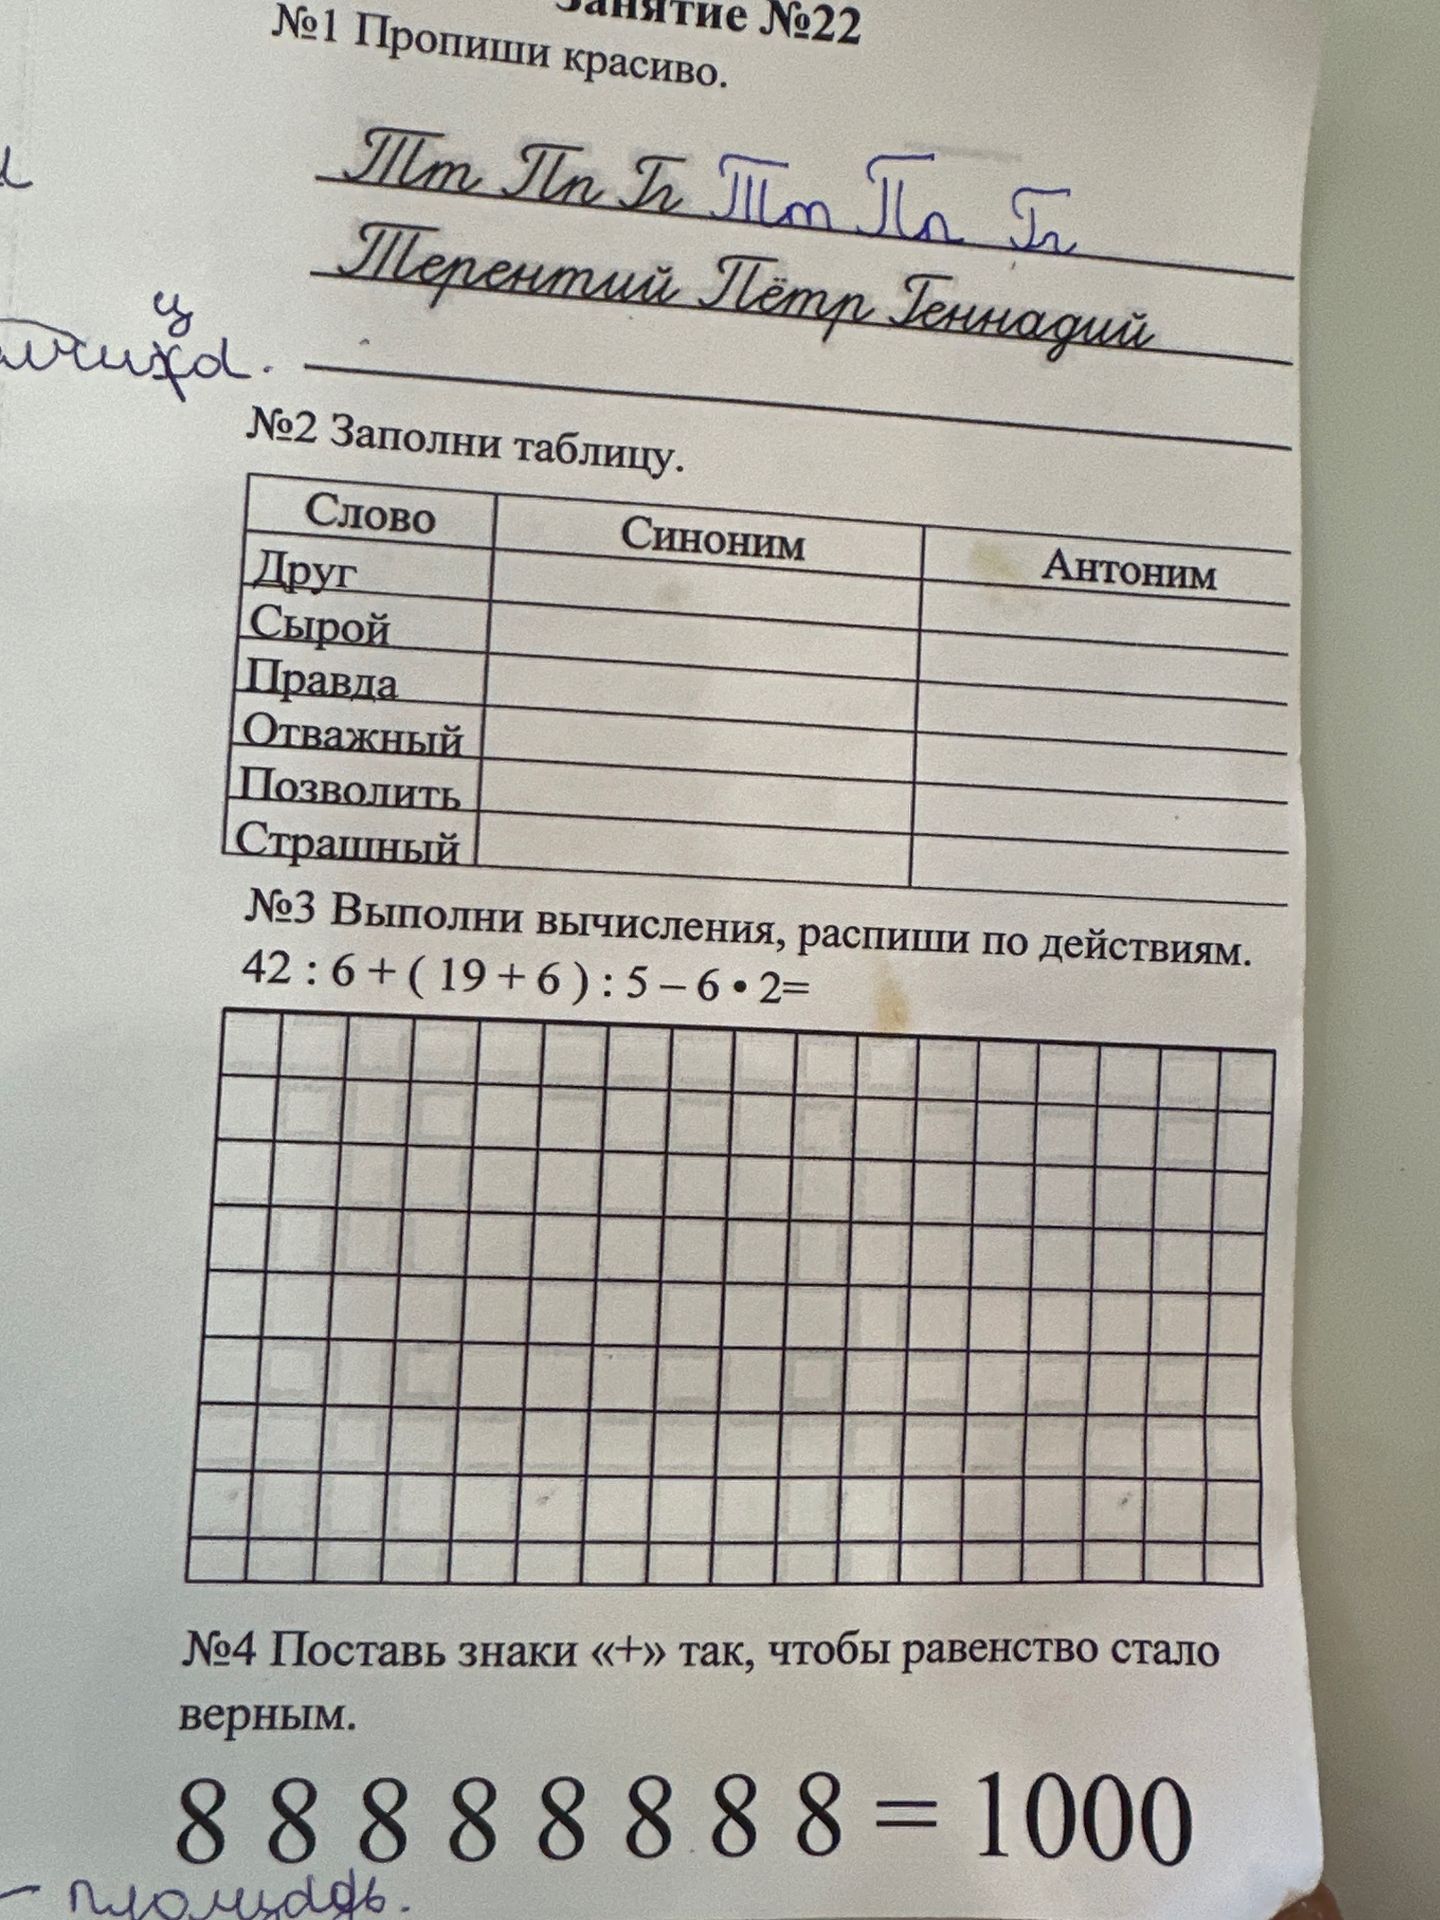 Занятие №22
№1 Пропиши красиво.
Тт Пп Гг Тт Пп Гг
Терентий Пётр Геннадий
ц
№2 Заполни таблицу.
Слово Синоним Антоним
Друг
Сырой
Правда
Отважный
Позволить
Страшный
№3 Выполни вычисления, распиши по действиям.
42 : 6 + ( 19 + 6 ) : 5 – 6 • 2=
№4 Поставь знаки «+» так, чтобы равенство стало
верным.
8 8 8 8 8 8 8 8 = 1000
– площадь.